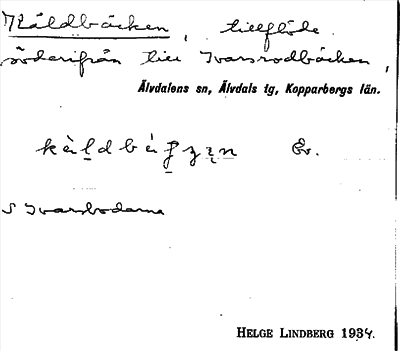 Kåldbäcken, tillflöde
söderifrån till Ivarsrodbäcken,
Älvdalens sn, Älvdals tg, Kopparbergs län.
Ev.
S Ivarsbodarna
HELGE LINDBERG 1934.